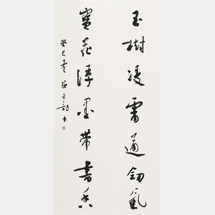 玉樹凌霄通劍氣
寶花浮墨帶書香
癸巳夏